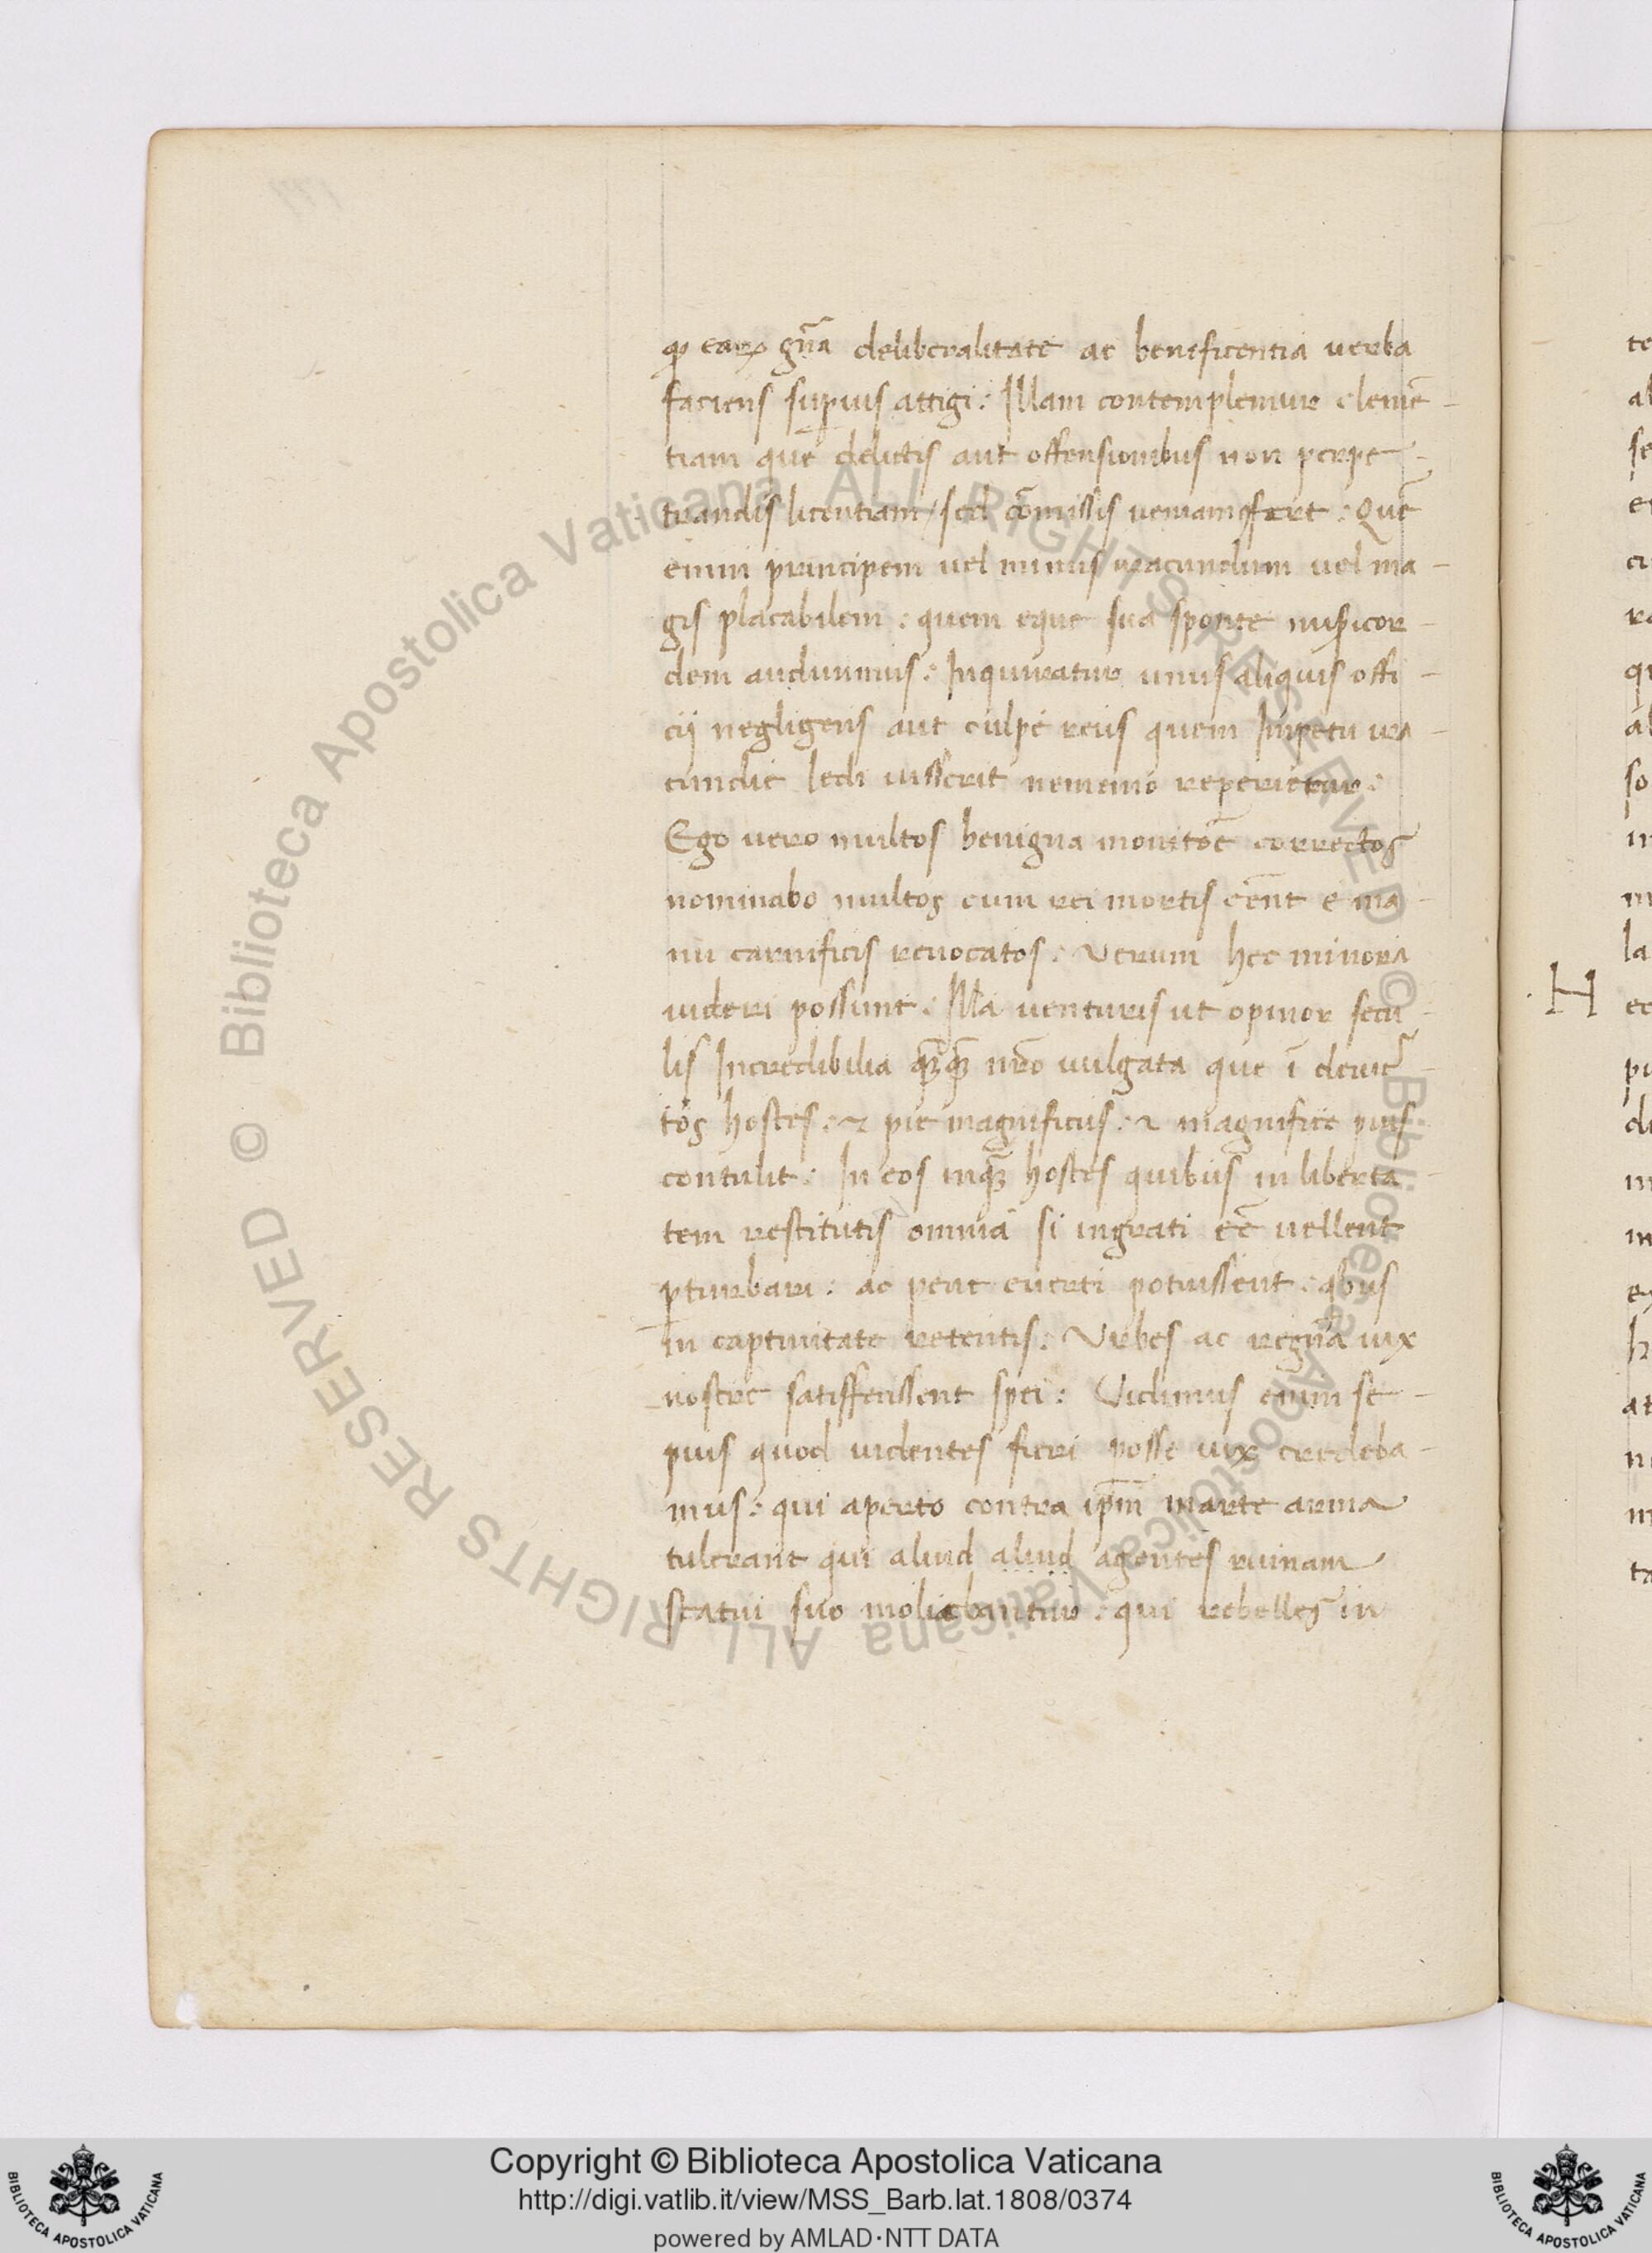 qꝫ earꝝ gn̄a deliberalitate ac beneficentia uerba
faciens supius attigi: Illam contemplemur clemē-
tiam que delictis aut offensionibus non perpe-
trandis licentiam / sed cōmissis ueniam fert: Quē
enim principem uel minus iracundum uel ma-
gis placabilem: quem eque sua sponte misericor-
dem audiuimus: Inquiratur unus aliquis offi-
cij negligens aut culpe reus quem Impetu ira-
cundie ledi iusserit nemenio reperietur:
Ego uero multos benigna monitōe correctos
nominabo multos cum rei mortis eēnt e ma-
nu carnificis reuocatos: Verum hec minora
uideri possunt: Illa uenturis ut opinor secu-
lis Incredibilia qꝫqꝫ uulgata que ī deuic-
tos hostes: & pie magnificus: & magnifice pius
contulit: In eos inqꝫ hostes quibus in liberta-
tem restitutis omnia si ingrati eē uellent
pturbari: ac pene euerti potuissent: qbus
in captiuitate retentis: Vrbes ac regna uix
nostre satisffecissent spei: Vidimus enim se-
pius quod uidentes fieri posse uix credeba-
mus: qui aperto contra ip̄m marte arma
tulerant qui aliud aliud agentes ruinam
statui suo moliebantur: qui rebelles in
H
© Biblioteca Apostolica Vaticana ALL RIGHTS RESERVED © Biblioteca Apostolica Vaticana ALL RIGHTS RESERVED
Copyright © Biblioteca Apostolica Vaticana
http://digi.vatlib.it/view/MSS_Barb.lat.1808/0374
powered by AMLAD·NTT DATA
BIBLIOTECA APOSTOLICA VATICANA
BIBLIOTECA APOSTOLICA VATICANA